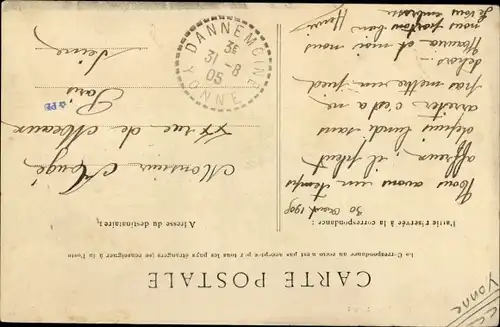 CARTE POSTALE
La Correspondance au recto n'est pas acceptée par tous les pays étrangers (se renseigner à la Poste
Partie réservée à la correspondance :
Adresse du destinataire :
30 Août 1905
Nous avons un temps
affreux ; il pleut
depuis lundi sans
arrêter c'est a ne
pas mettre un pied
dehors...
et moi nous
nous portons bien
Je vous embrasse
Henri
Monsieur Augé
rue de Meaux
Paris
Seine
DANNEMOINE
31 -8
05
YONNE
Yonne